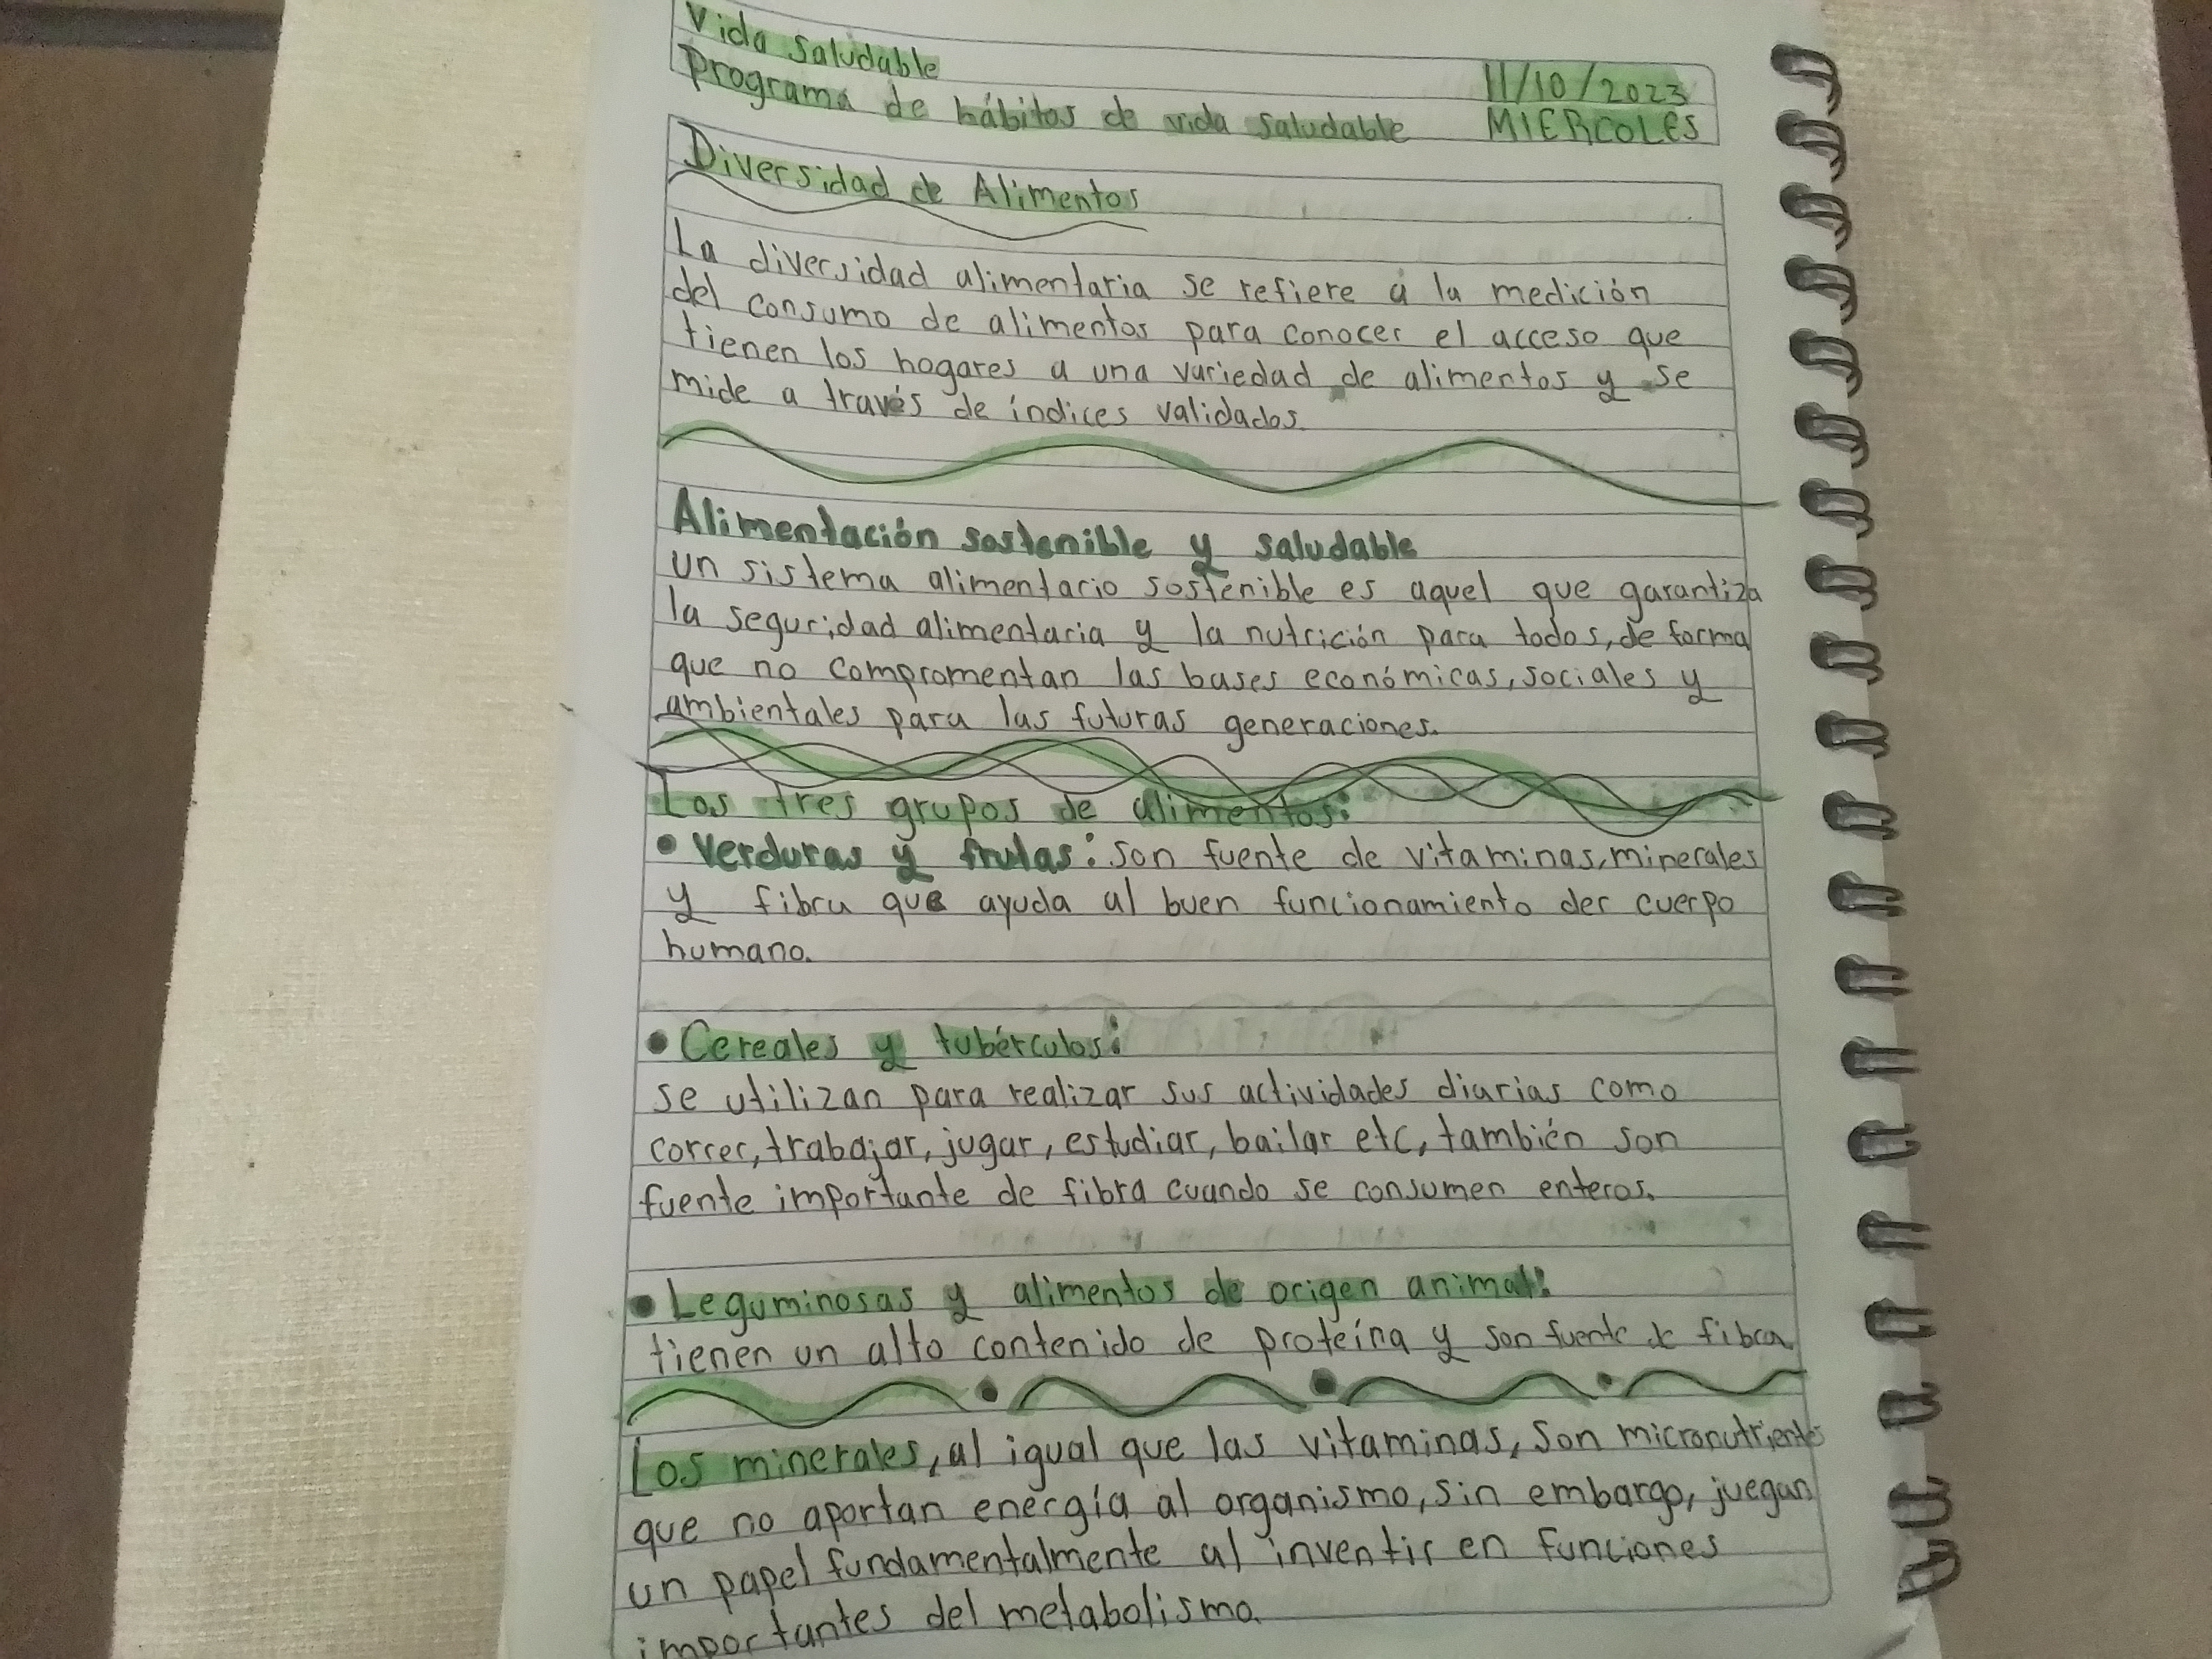 Vida saludable
Programa de hábitos de vida saludable
11/10/2023
MIERCOLES
Diversidad de Alimentos
La diversidad alimentaria se refiere a la medición
del consumo de alimentos para conocer el acceso que
tienen los hogares a una variedad de alimentos y se
mide a través de índices validados.
Alimentación sostenible y saludable
un sistema alimentario sostenible es aquel que garantiza
la seguridad alimentaria y la nutrición para todos, de forma
que no compromentan las bases económicas, sociales y
ambientales para las futuras generaciones.
Los tres grupos de alimentos:
• Verduras y frutas: son fuente de vitaminas, minerales
y fibra que ayuda al buen funcionamiento der cuerpo
humano.
• Cereales y tubérculos:
se utilizan para realizar sus actividades diarias como
correr, trabajar, jugar, estudiar, bailar etc, también son
fuente importante de fibra cuando se consumen enteros.
• Leguminosas y alimentos de origen animal:
tienen un alto contenido de proteína y son fuente de fibra.
Los minerales, al igual que las vitaminas, son micronutrientes
que no aportan energía al organismo, sin embargo, juegan
un papel fundamentalmente al inventir en funciones
importantes del metabolismo.